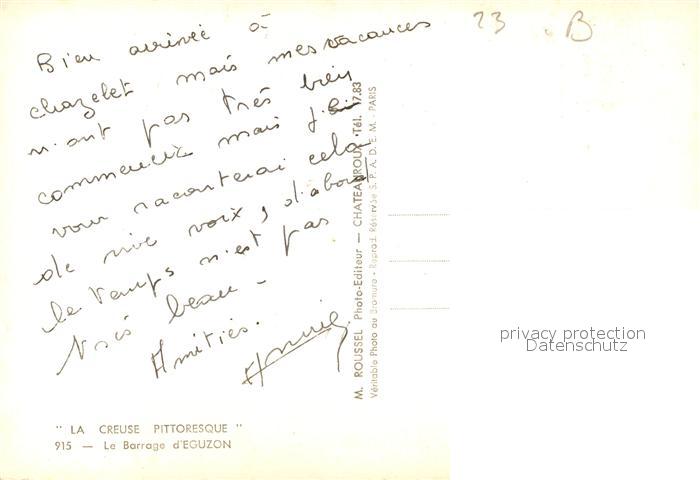 23 . B
Bien arrivée à
chazelet mais mes vacances
n'ont pas très bien
commencix mais j'ai
vous raconterai cela
de vive voix, d'abord
le temps n'est pas
très beau -
Amitiés.
Annie
" LA CREUSE PITTORESQUE "
915 — Le Barrage d'EGUZON
M. ROUSSEL Photo-Editeur — CHATEAUROUX Tél. 17.83
Véritable Photo au Bromure - Reprod. Réservée S.P.A.D.E.M. - PARIS
privacy protection
Datenschutz